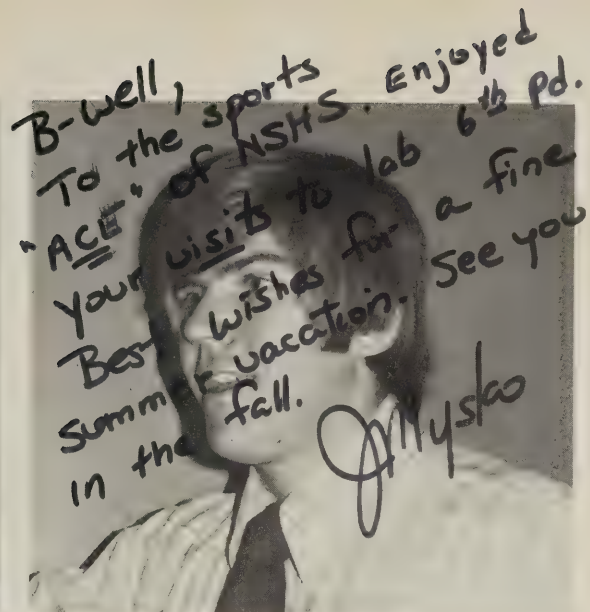 B-well,
To the sports
"ACE" of NSHS. Enjoyed
your visits to lab 6th Pd.
Best wishes for a fine
summer vacation. See you
in the fall.